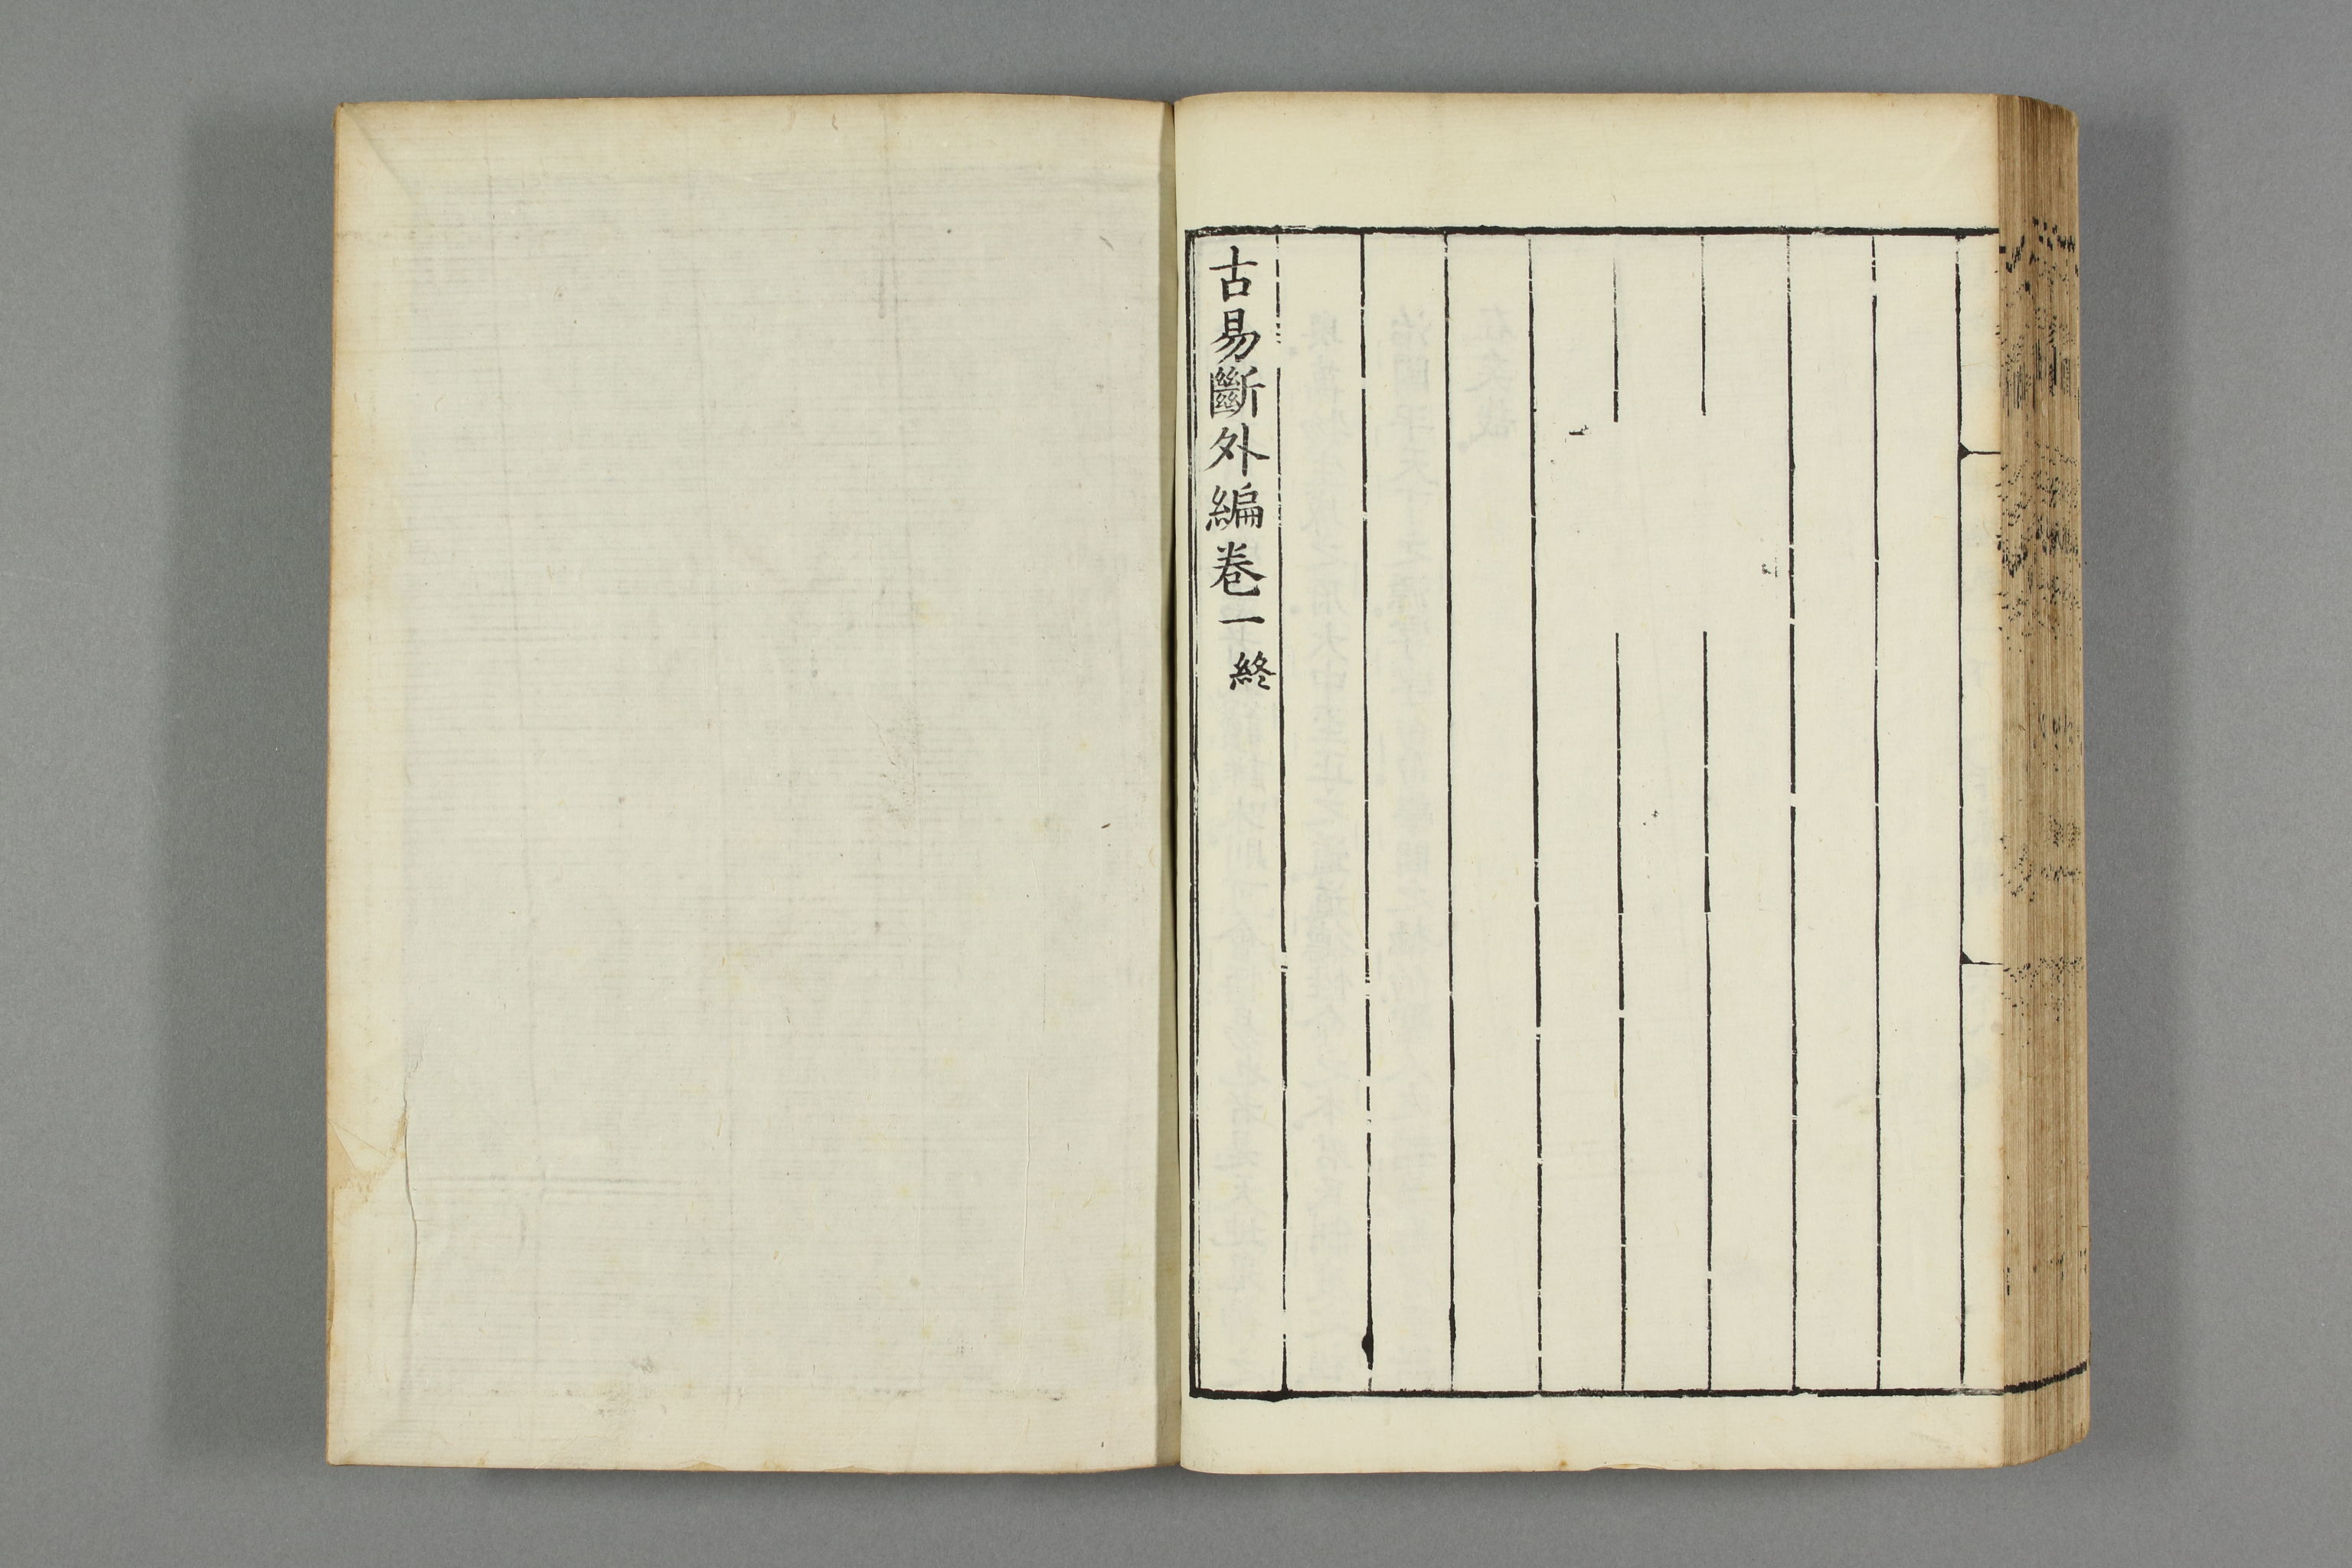 古易斷外編卷一終